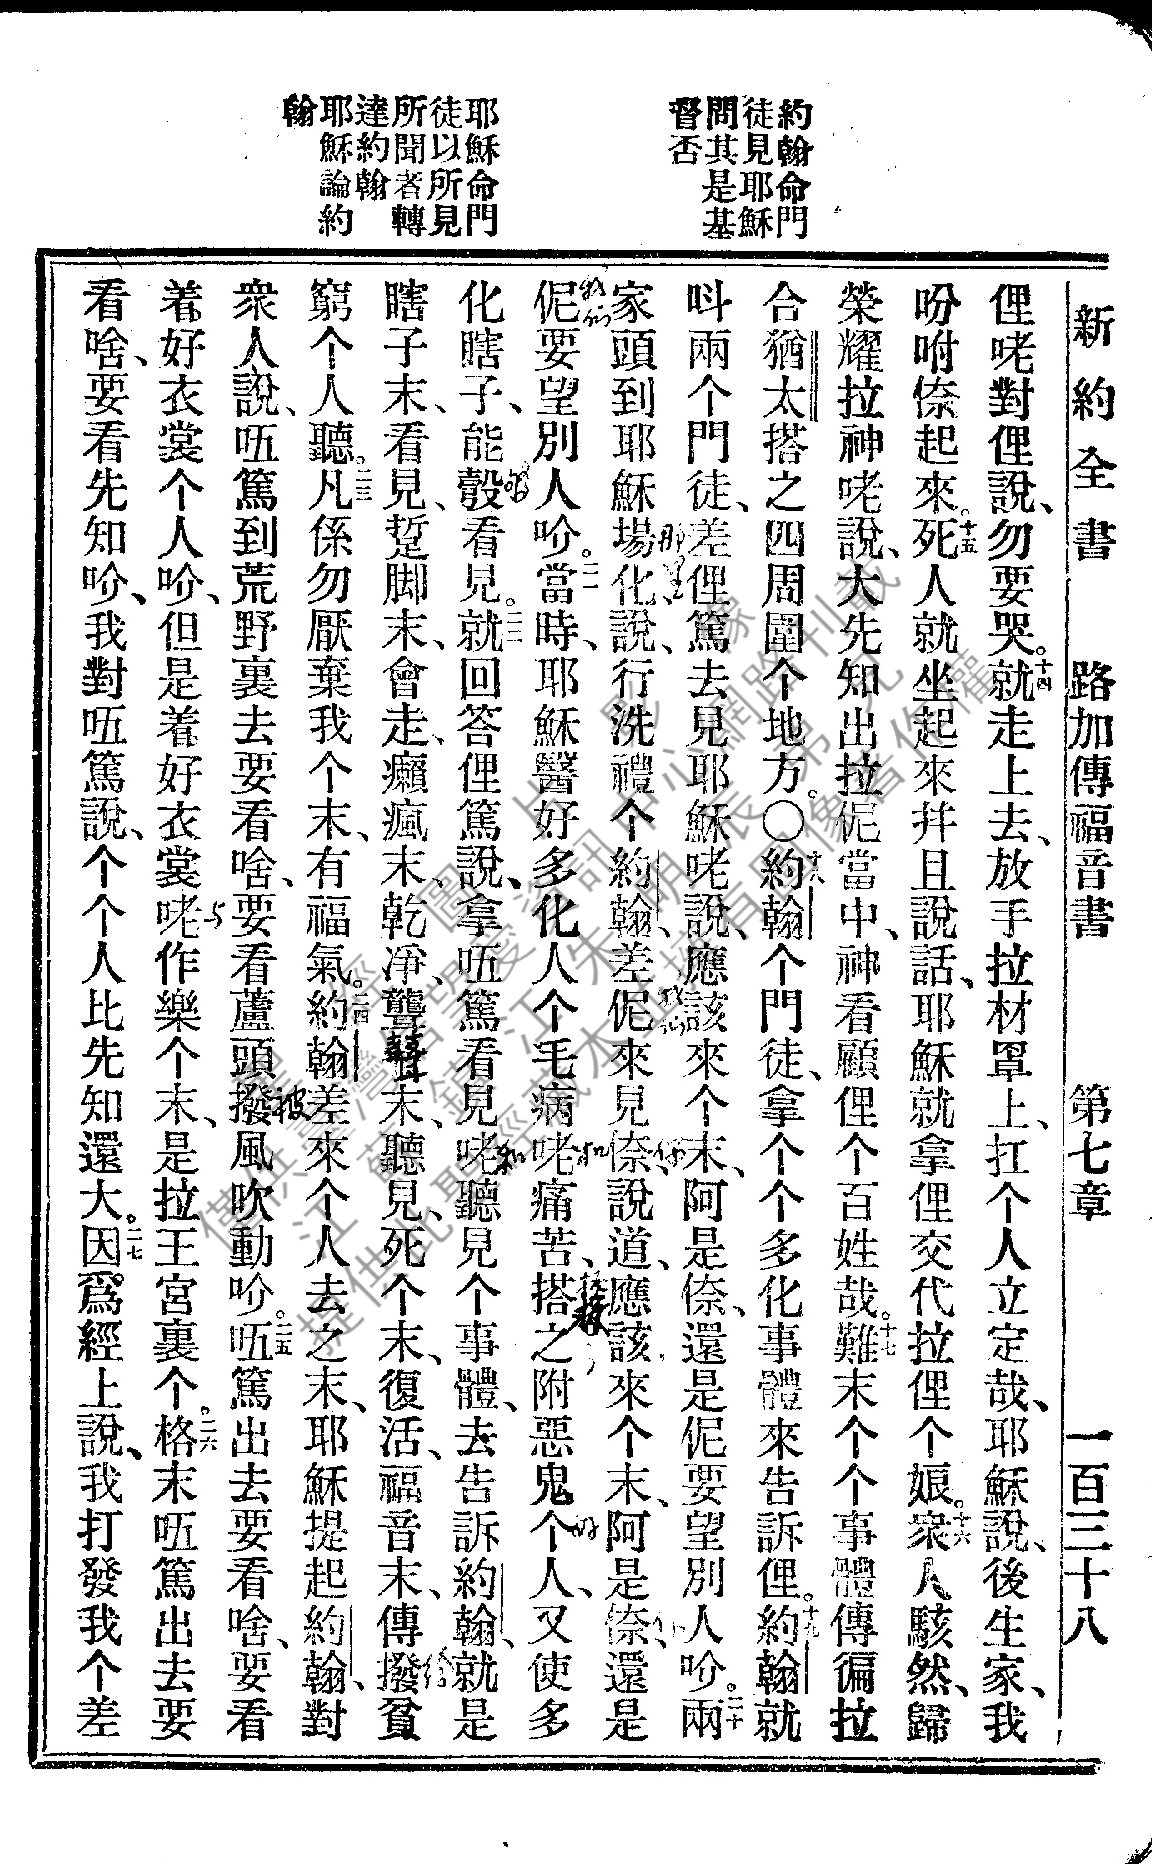 新約全書 路加傳福音書 第七章 一百三十八
約翰命門
徒見耶穌
問其是基
督否
耶穌命門
徒以所見
所聞者轉
達約翰
耶穌論約
翰
俚咾對俚說、勿要哭。十四就走上去、放手拉材罩上、扛个人立定哉、耶穌說、後生家、我
吩咐倷起來。十五死人就坐起來幷且說話、耶穌就拿俚交代拉俚个娘。十六衆人駭然、歸
榮耀拉神咾說、大先知出拉伲當中、神看顧俚个百姓哉。十七難末个个事體傳徧拉
合猶太搭之四周圍个地方。〇十八約翰个門徒、拿个个多化事體來告訴俚。十九約翰就
呌兩个門徒、差俚篤去見耶穌咾說、應該來个末、阿是倷、還是伲要望別人吤。二十兩
家頭到耶穌場化、說、行洗禮个約翰、差伲來見倷、說道、應該來个末、阿是倷、還是
伲要望別人吤。二一當時、耶穌醫好多化人个毛病咾痛苦、搭之附惡鬼个人、又使多
化瞎子、能彀看見。二二就回答俚篤說、拿㕶篤看見咾聽見个事體、去告訴約翰、就是
瞎子末、看見、踅脚末、會走、癩瘋末、乾淨、聾𦖋末、聽見、死个末、復活、福音末、傳撥貧
窮个人聽。二三凡係勿厭棄我个末、有福氣。二四約翰差來个人去之末、耶穌提起約翰、對
衆人說、㕶篤到荒野裏去要看啥、要看蘆頭撥風吹動吤。二五㕶篤出去要看啥、要看
着好衣裳个人吤、但是着好衣裳咾作樂个末、是拉王宮裏个。二六格末㕶篤出去要
看啥、要看先知吤、我對㕶篤說、个个人比先知還大。二七因爲經上說、我打發我个差